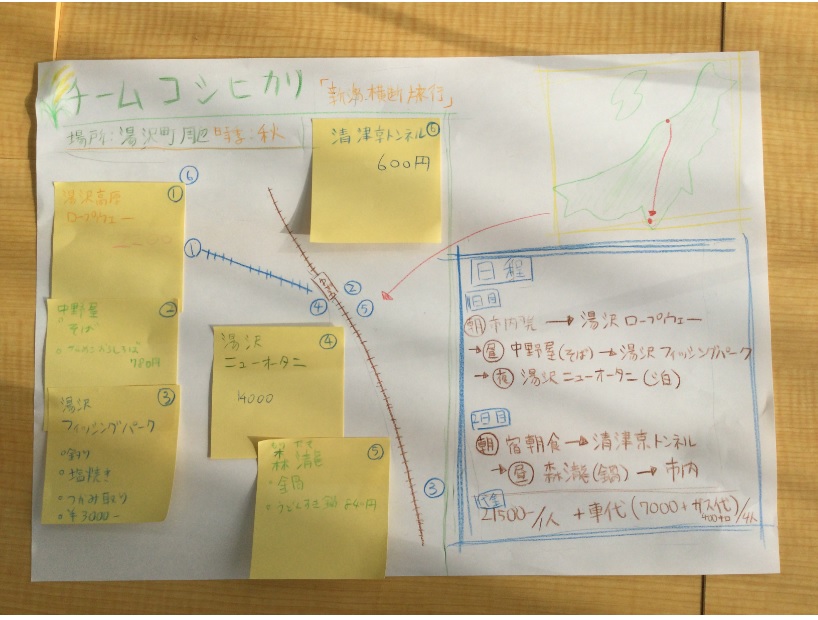 チームコシヒカリ「新潟横断旅行」
場所:湯沢町周辺 時季:秋
清津京トンネル ⑥
600円
湯沢高原 ①
ロープウェー
⑥
①
②
④
⑤
③
中野屋 ②
そば
780円
湯沢 ③
フィッシングパーク
○釣り
○塩焼き
○つかみ取り
○¥3000-
湯沢 ④
ニューオータニ
14000
森瀧 ⑤
○鍋
日程
1日目
朝 市内発 → 湯沢ロープウェー
→ 昼 中野屋(そば) → 湯沢フィッシングパーク
→ 夜 湯沢ニューオータニ(泊)
2日目
朝 宿朝食 → 清津京トンネル
→ 昼 森瀧(鍋) → 市内
21500-/1人 + 車代(7000+ガス代)/4人